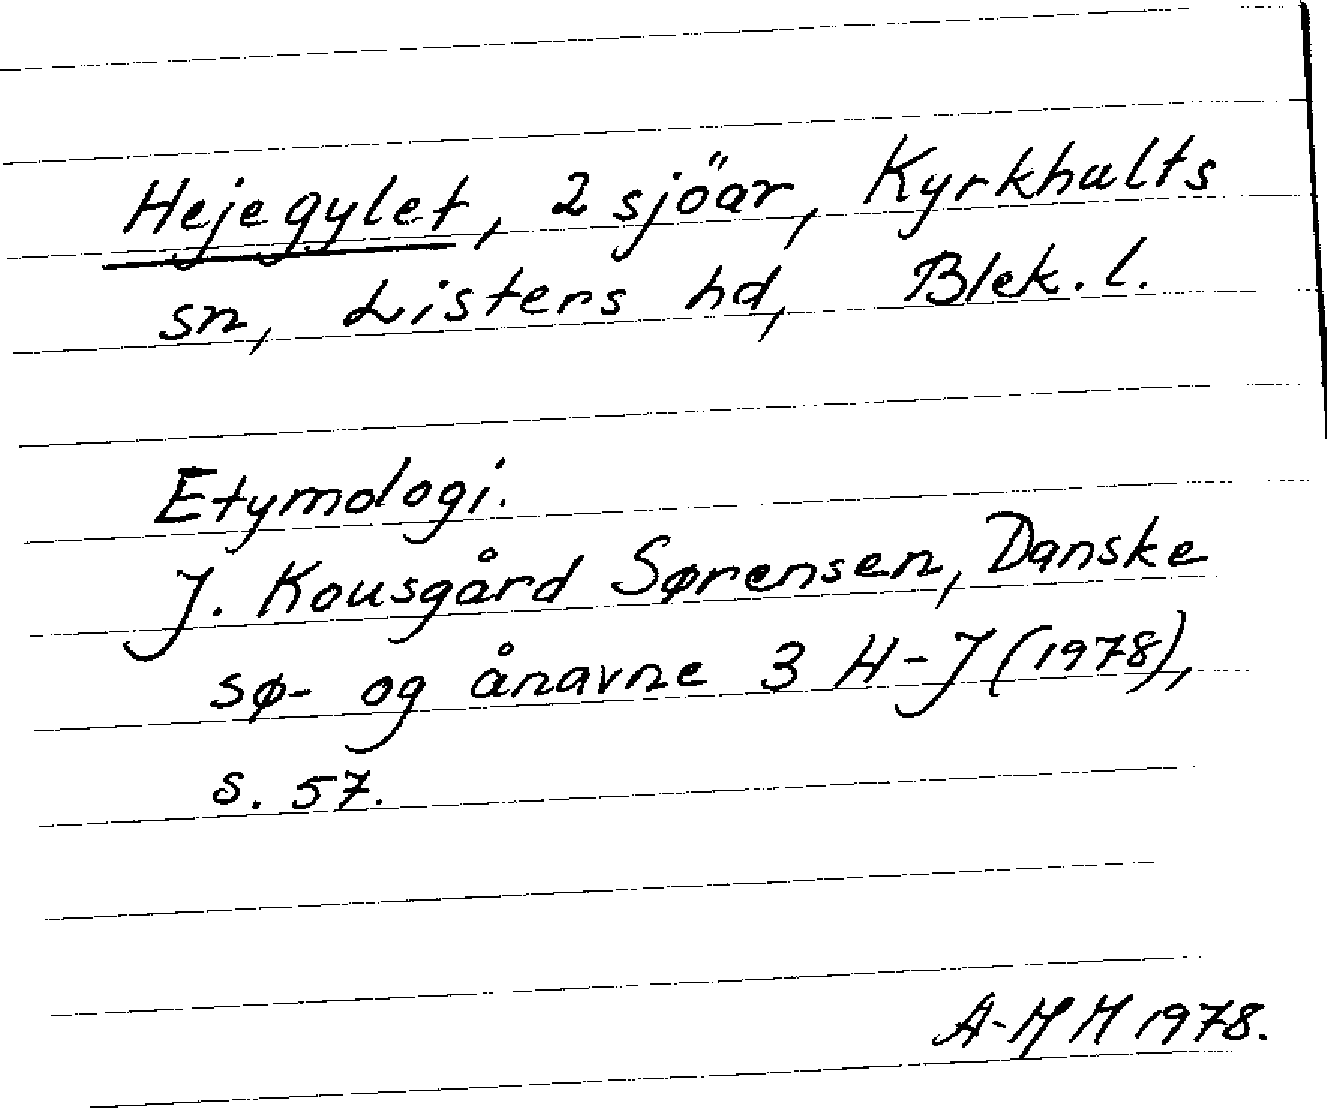 Hejegylet, 2 sjöar, Kyrkhults
sn, Listers hd, Blek. l.
Etymologi.
J. Kousgård Sørensen, Danske
sø- og ånavne 3 H-J (1978),
s. 57.
A-M H 1978.